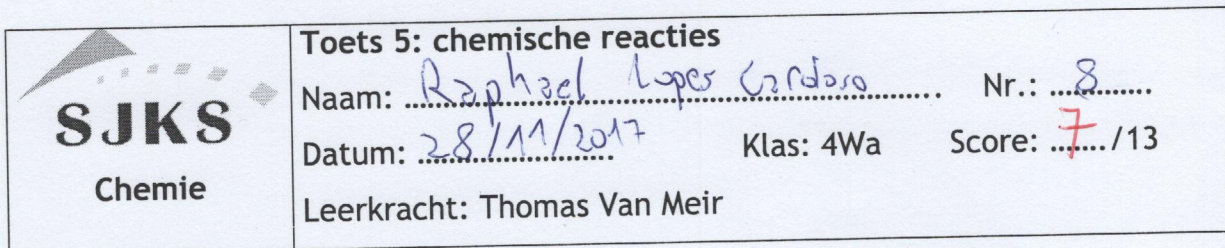 SJKS
Chemie
Toets 5: chemische reacties
Naam: Raphael Lopes Cardoso Nr.: 8
Datum: 28/11/2017 Klas: 4Wa Score: 7/13
Leerkracht: Thomas Van Meir